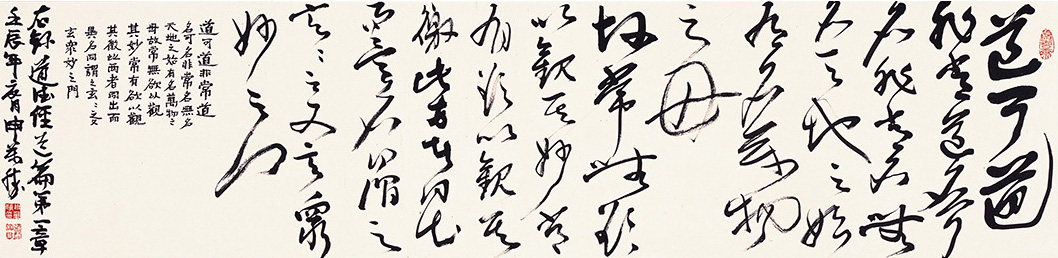 道可道
非常道名可
名非常名無
名天地之始
有名萬物
之母
故常無欲
以觀其妙常
有欲以觀其
徼此兩者同出
而異名同謂之
玄玄之又玄衆
妙之門
道可道非常道
名可名非常名無名
天地之始有名萬物之
母故常無欲以觀
其妙常有欲以觀
其徼此兩者同出而
異名同謂之玄〻之又
玄衆妙之門
右録道德經篇第一章
壬辰年亥月申萬勝